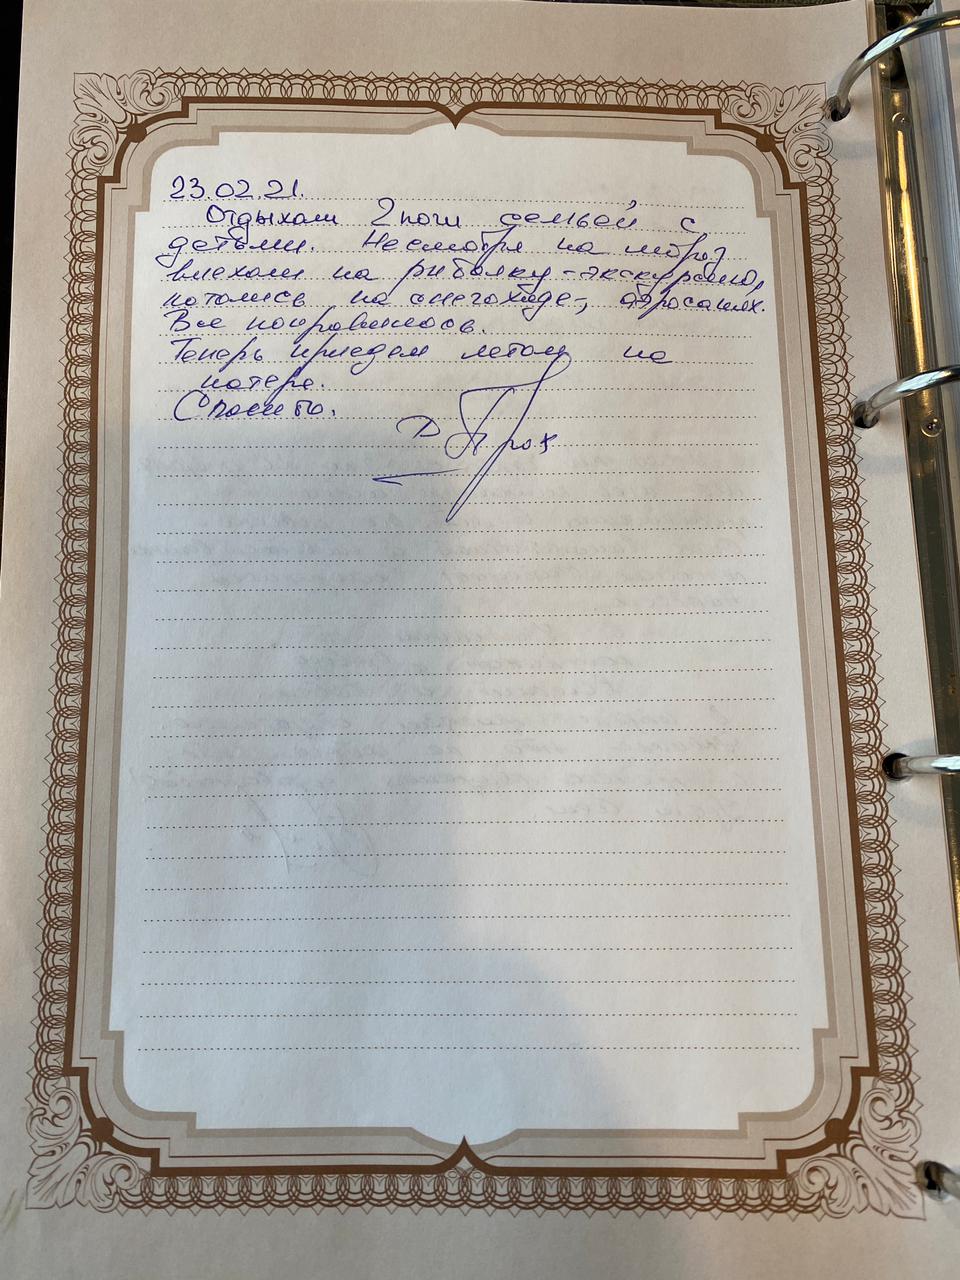 23.02.21.
Отдыхали 2 ночи семьей с
детьми. Несмотря на мороз
выехали на рыбалку-экскурсию,
катались на снегоходе, аэросанях.
Все понравилось.
Теперь приедем летом на
катере.
Спасибо.